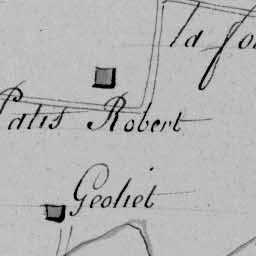 la fo
Patis Robert
Geoliet